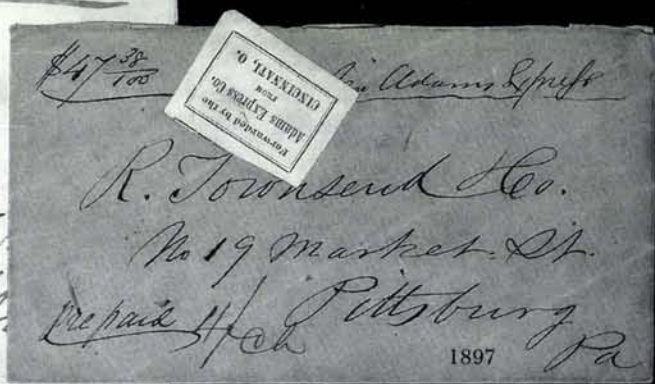 $47 38/100
Forwarded by the
Adams Express Co.
FROM
CINCINNATI, O.
Adams Express
R. Townsend & Co.
No 19 Market. St.
Pittsburg
Pa
prepaid
1897